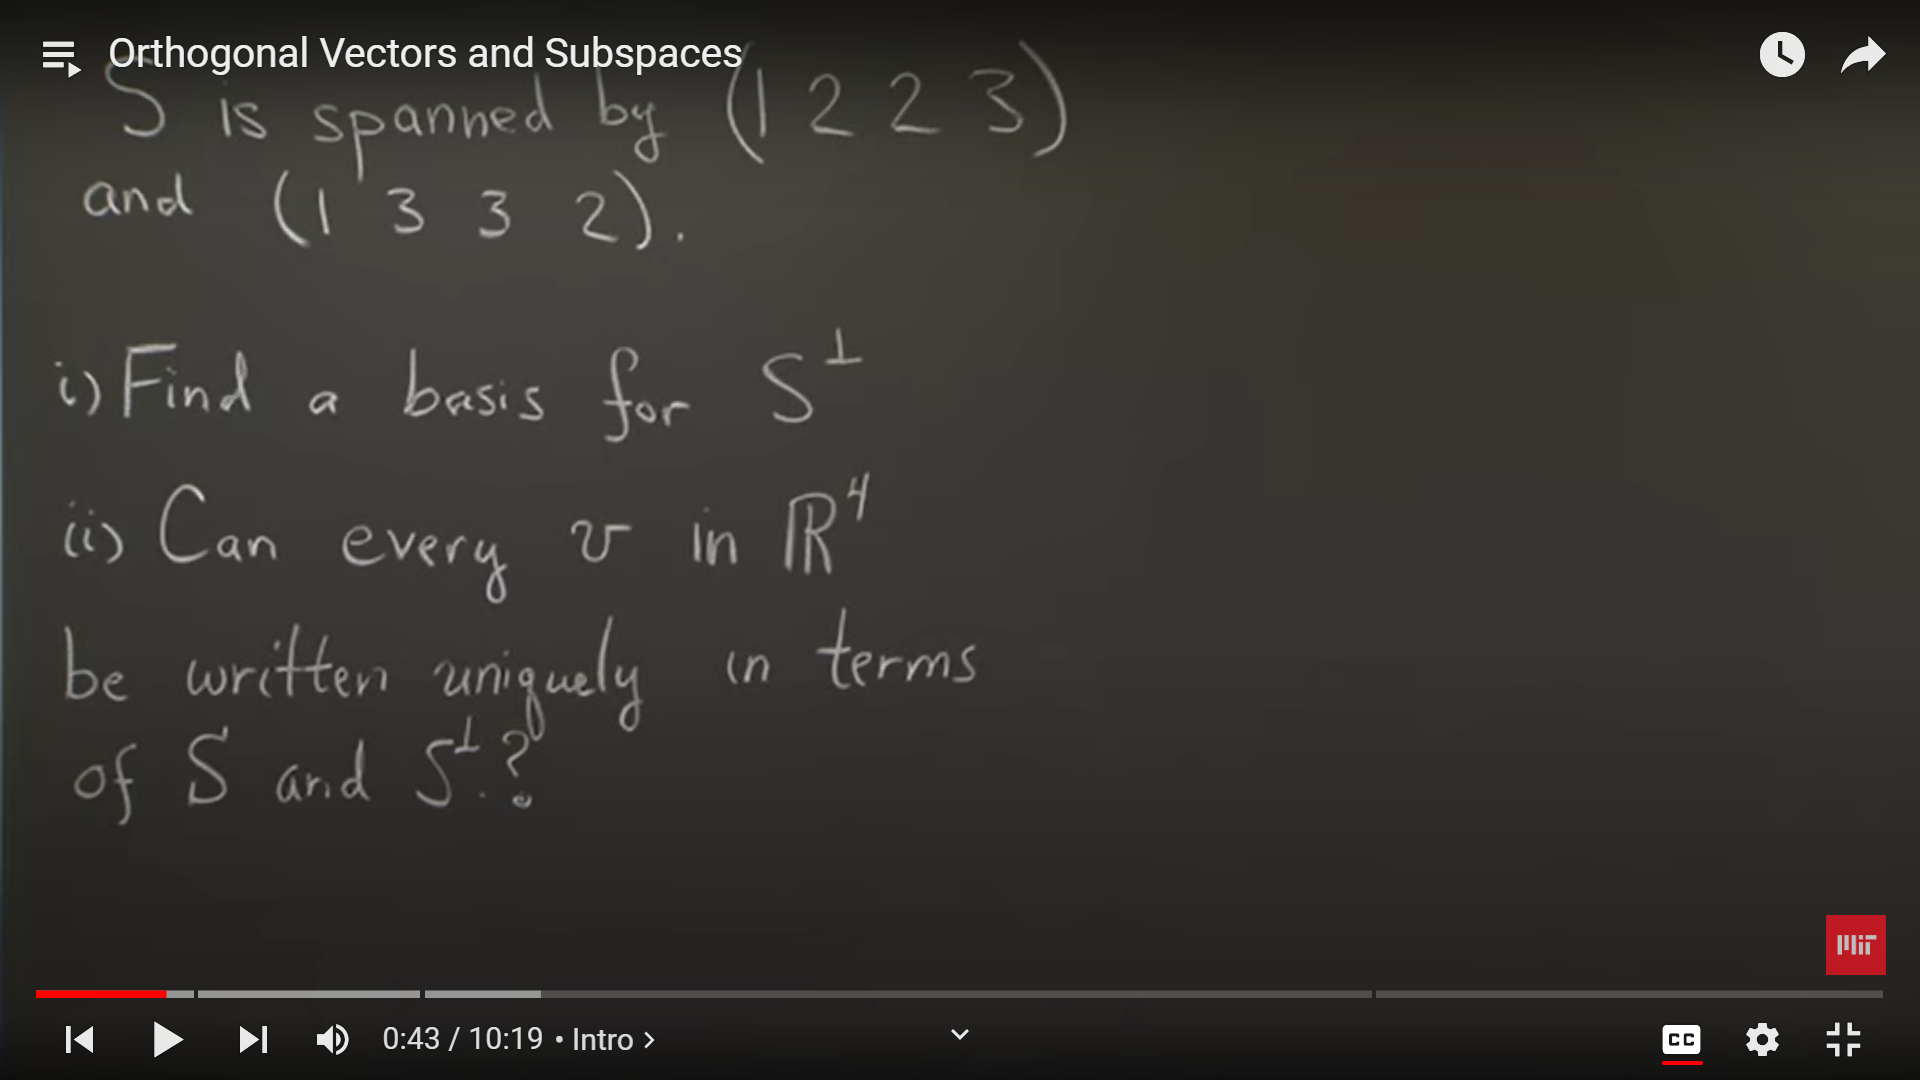 Orthogonal Vectors and Subspaces
S is spanned by (1 2 2 3)
and (1 3 3 2).
i) Find a basis for S⊥
ii) Can every v in ℝ⁴
be written uniquely in terms
of S and S⊥?
MIT
0:43 / 10:19 • Intro >
CC